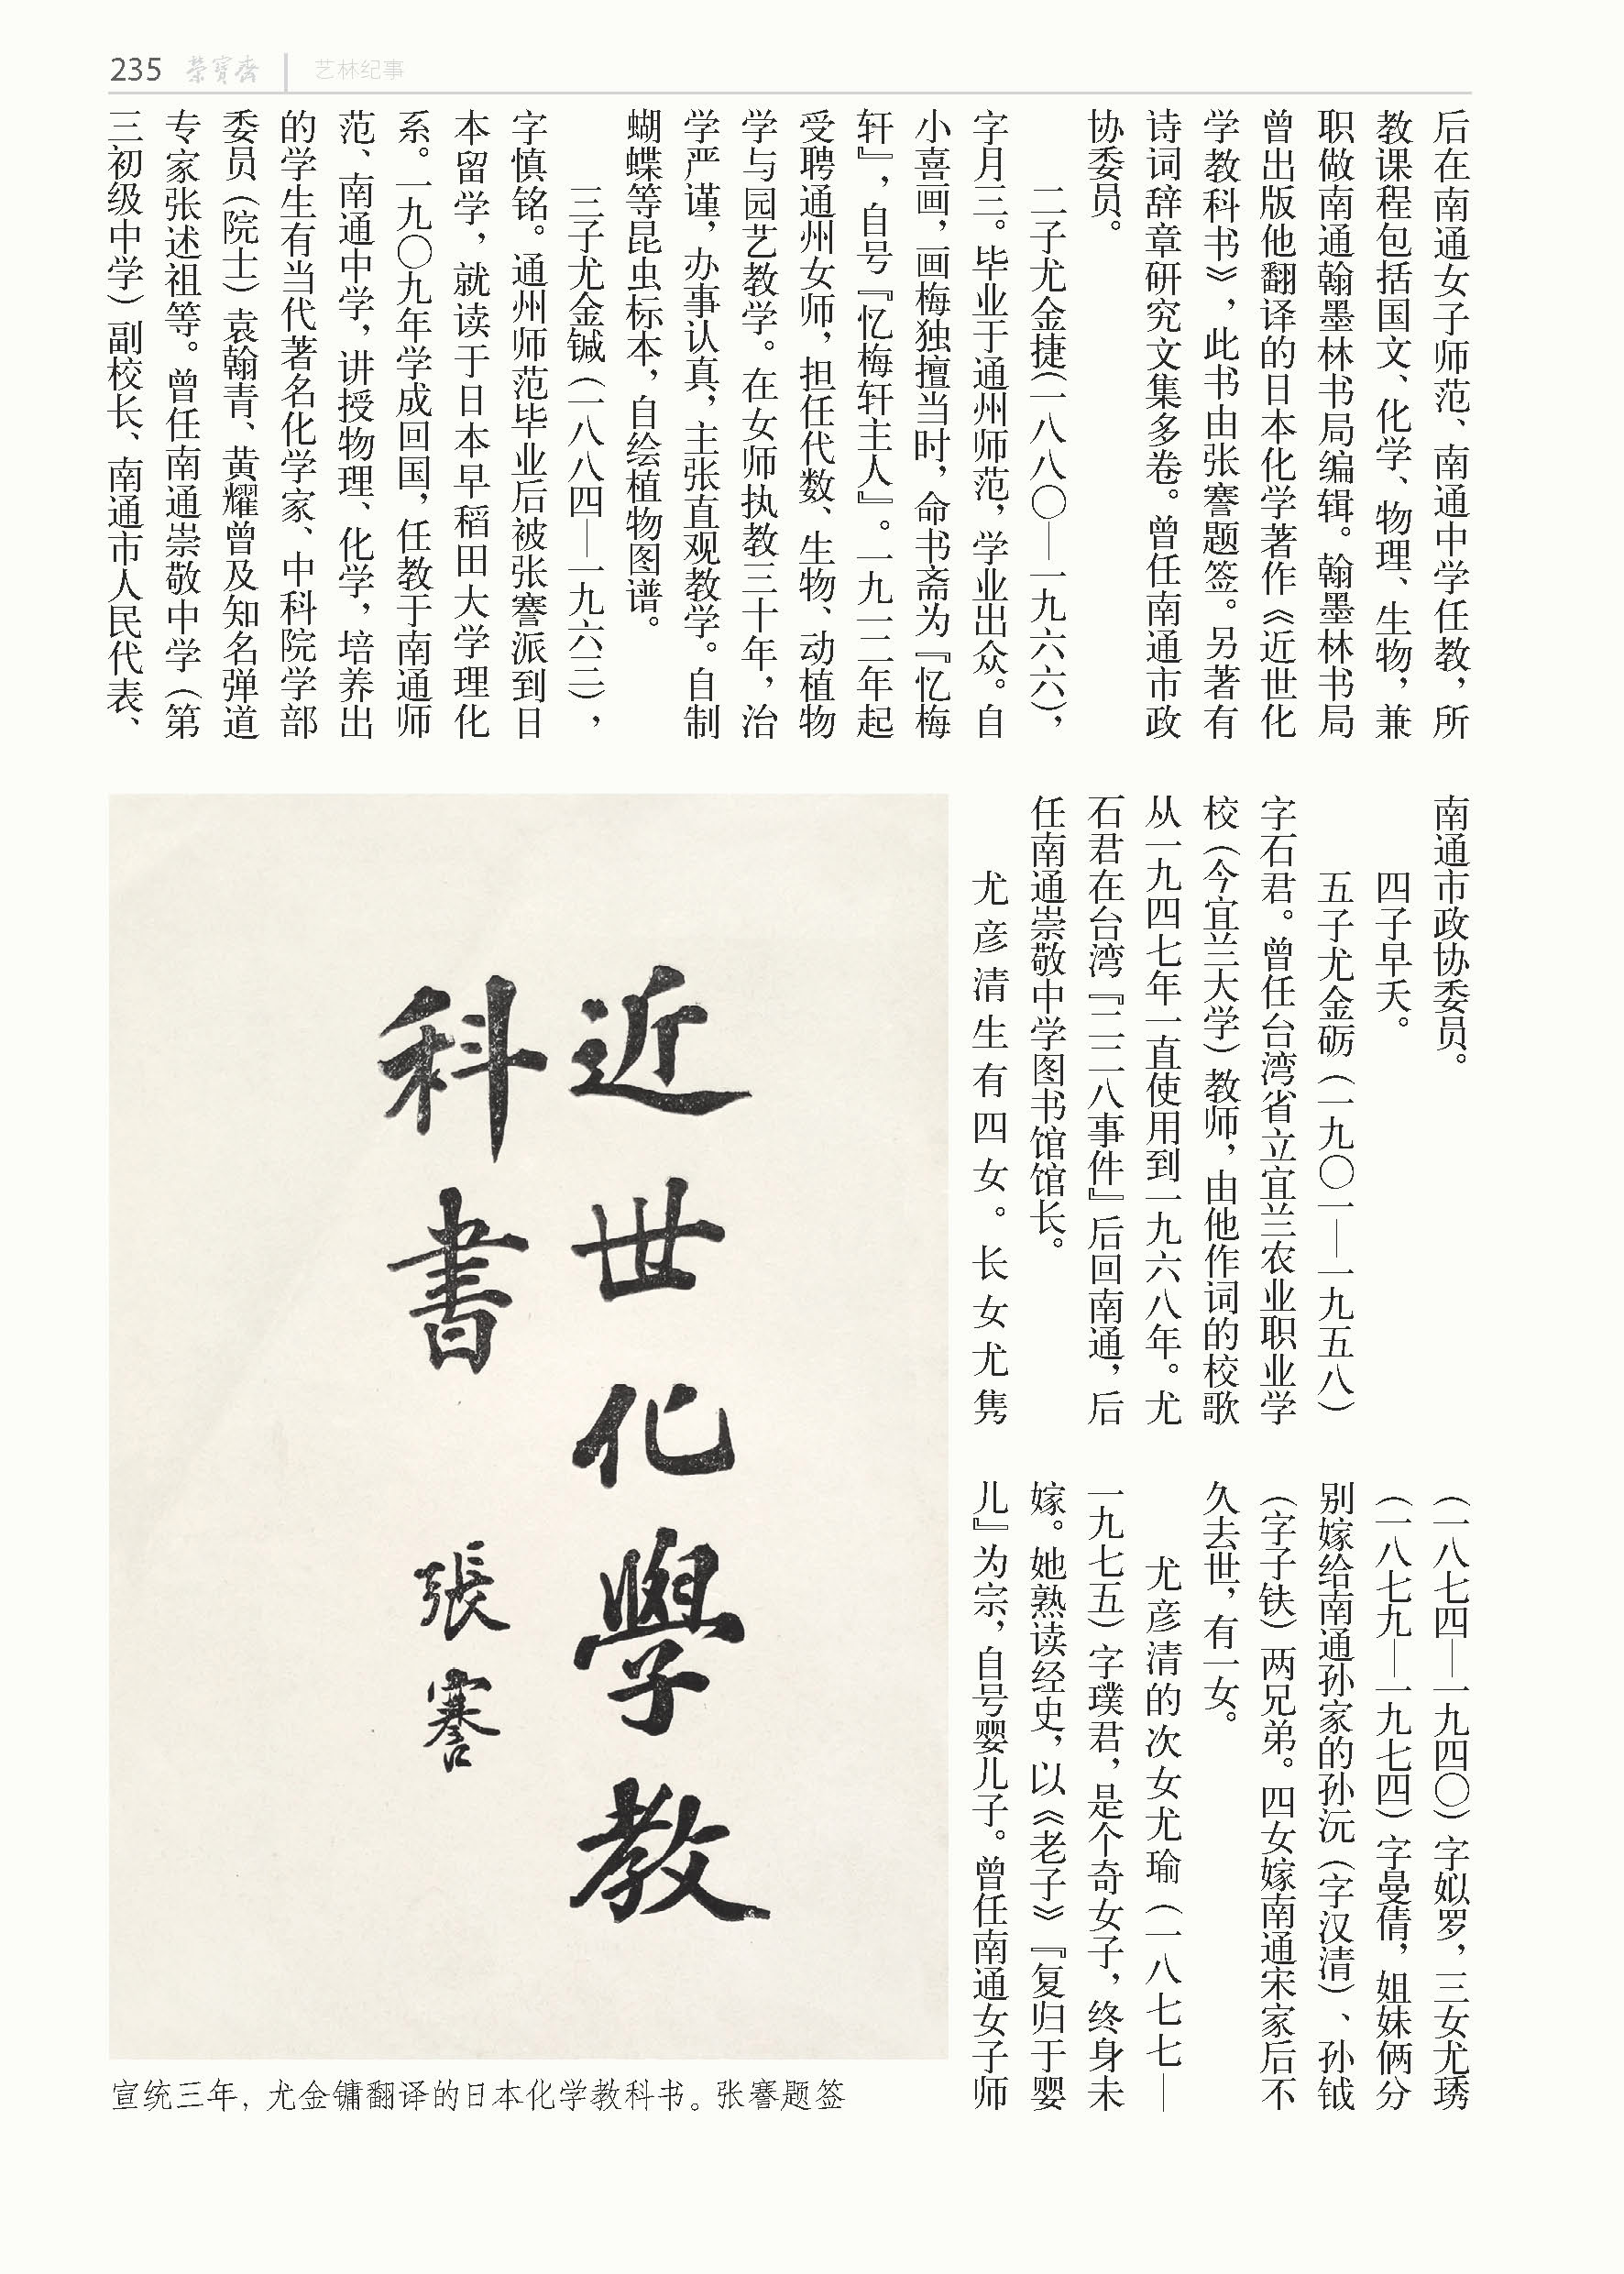 235 荣宝斋 艺林纪事
后在南通女子师范、南通中学任教，所
教课程包括国文、化学、物理、生物，兼
职做南通翰墨林书局编辑。翰墨林书局
曾出版他翻译的日本化学著作《近世化
学教科书》，此书由张謇题签。另著有
诗词辞章研究文集多卷。曾任南通市政
协委员。
二子尤金捷（一八八〇—一九六六），
字月三。毕业于通州师范，学业出众。自
小喜画，画梅独擅当时，命书斋为『忆梅
轩』，自号『忆梅轩主人』。一九一二年起
受聘通州女师，担任代数、生物、动植物
学与园艺教学。在女师执教三十年，治
学严谨，办事认真，主张直观教学。自制
蝴蝶等昆虫标本，自绘植物图谱。
三子尤金缄（一八八四—一九六三），
字慎铭。通州师范毕业后被张謇派到日
本留学，就读于日本早稻田大学理化
系。一九〇九年学成回国，任教于南通师
范、南通中学，讲授物理、化学，培养出
的学生有当代著名化学家、中科院学部
委员（院士）袁翰青、黄耀曾及知名弹道
专家张述祖等。曾任南通崇敬中学（第
三初级中学）副校长、南通市人民代表、
南通市政协委员。
四子早夭。
五子尤金砺（一九〇一—一九五八）
字石君。曾任台湾省立宜兰农业职业学
校（今宜兰大学）教师，由他作词的校歌
从一九四七年一直使用到一九六八年。尤
石君在台湾『二二八事件』后回南通，后
任南通崇敬中学图书馆馆长。
尤彦清生有四女。长女尤隽
（一八七四—一九四〇）字姒罗，三女尤琇
（一八七九—一九七四）字曼倩，姐妹俩分
别嫁给南通孙家的孙沅（字汉清）、孙钺
（字子铁）两兄弟。四女嫁南通宋家后不
久去世，有一女。
尤彦清的次女尤瑜（一八七七—
一九七五）字璞君，是个奇女子，终身未
嫁。她熟读经史，以《老子》『复归于婴
儿』为宗，自号婴儿子。曾任南通女子师
近世化學教
科書 張謇
宣统三年，尤金镛翻译的日本化学教科书。张謇题签